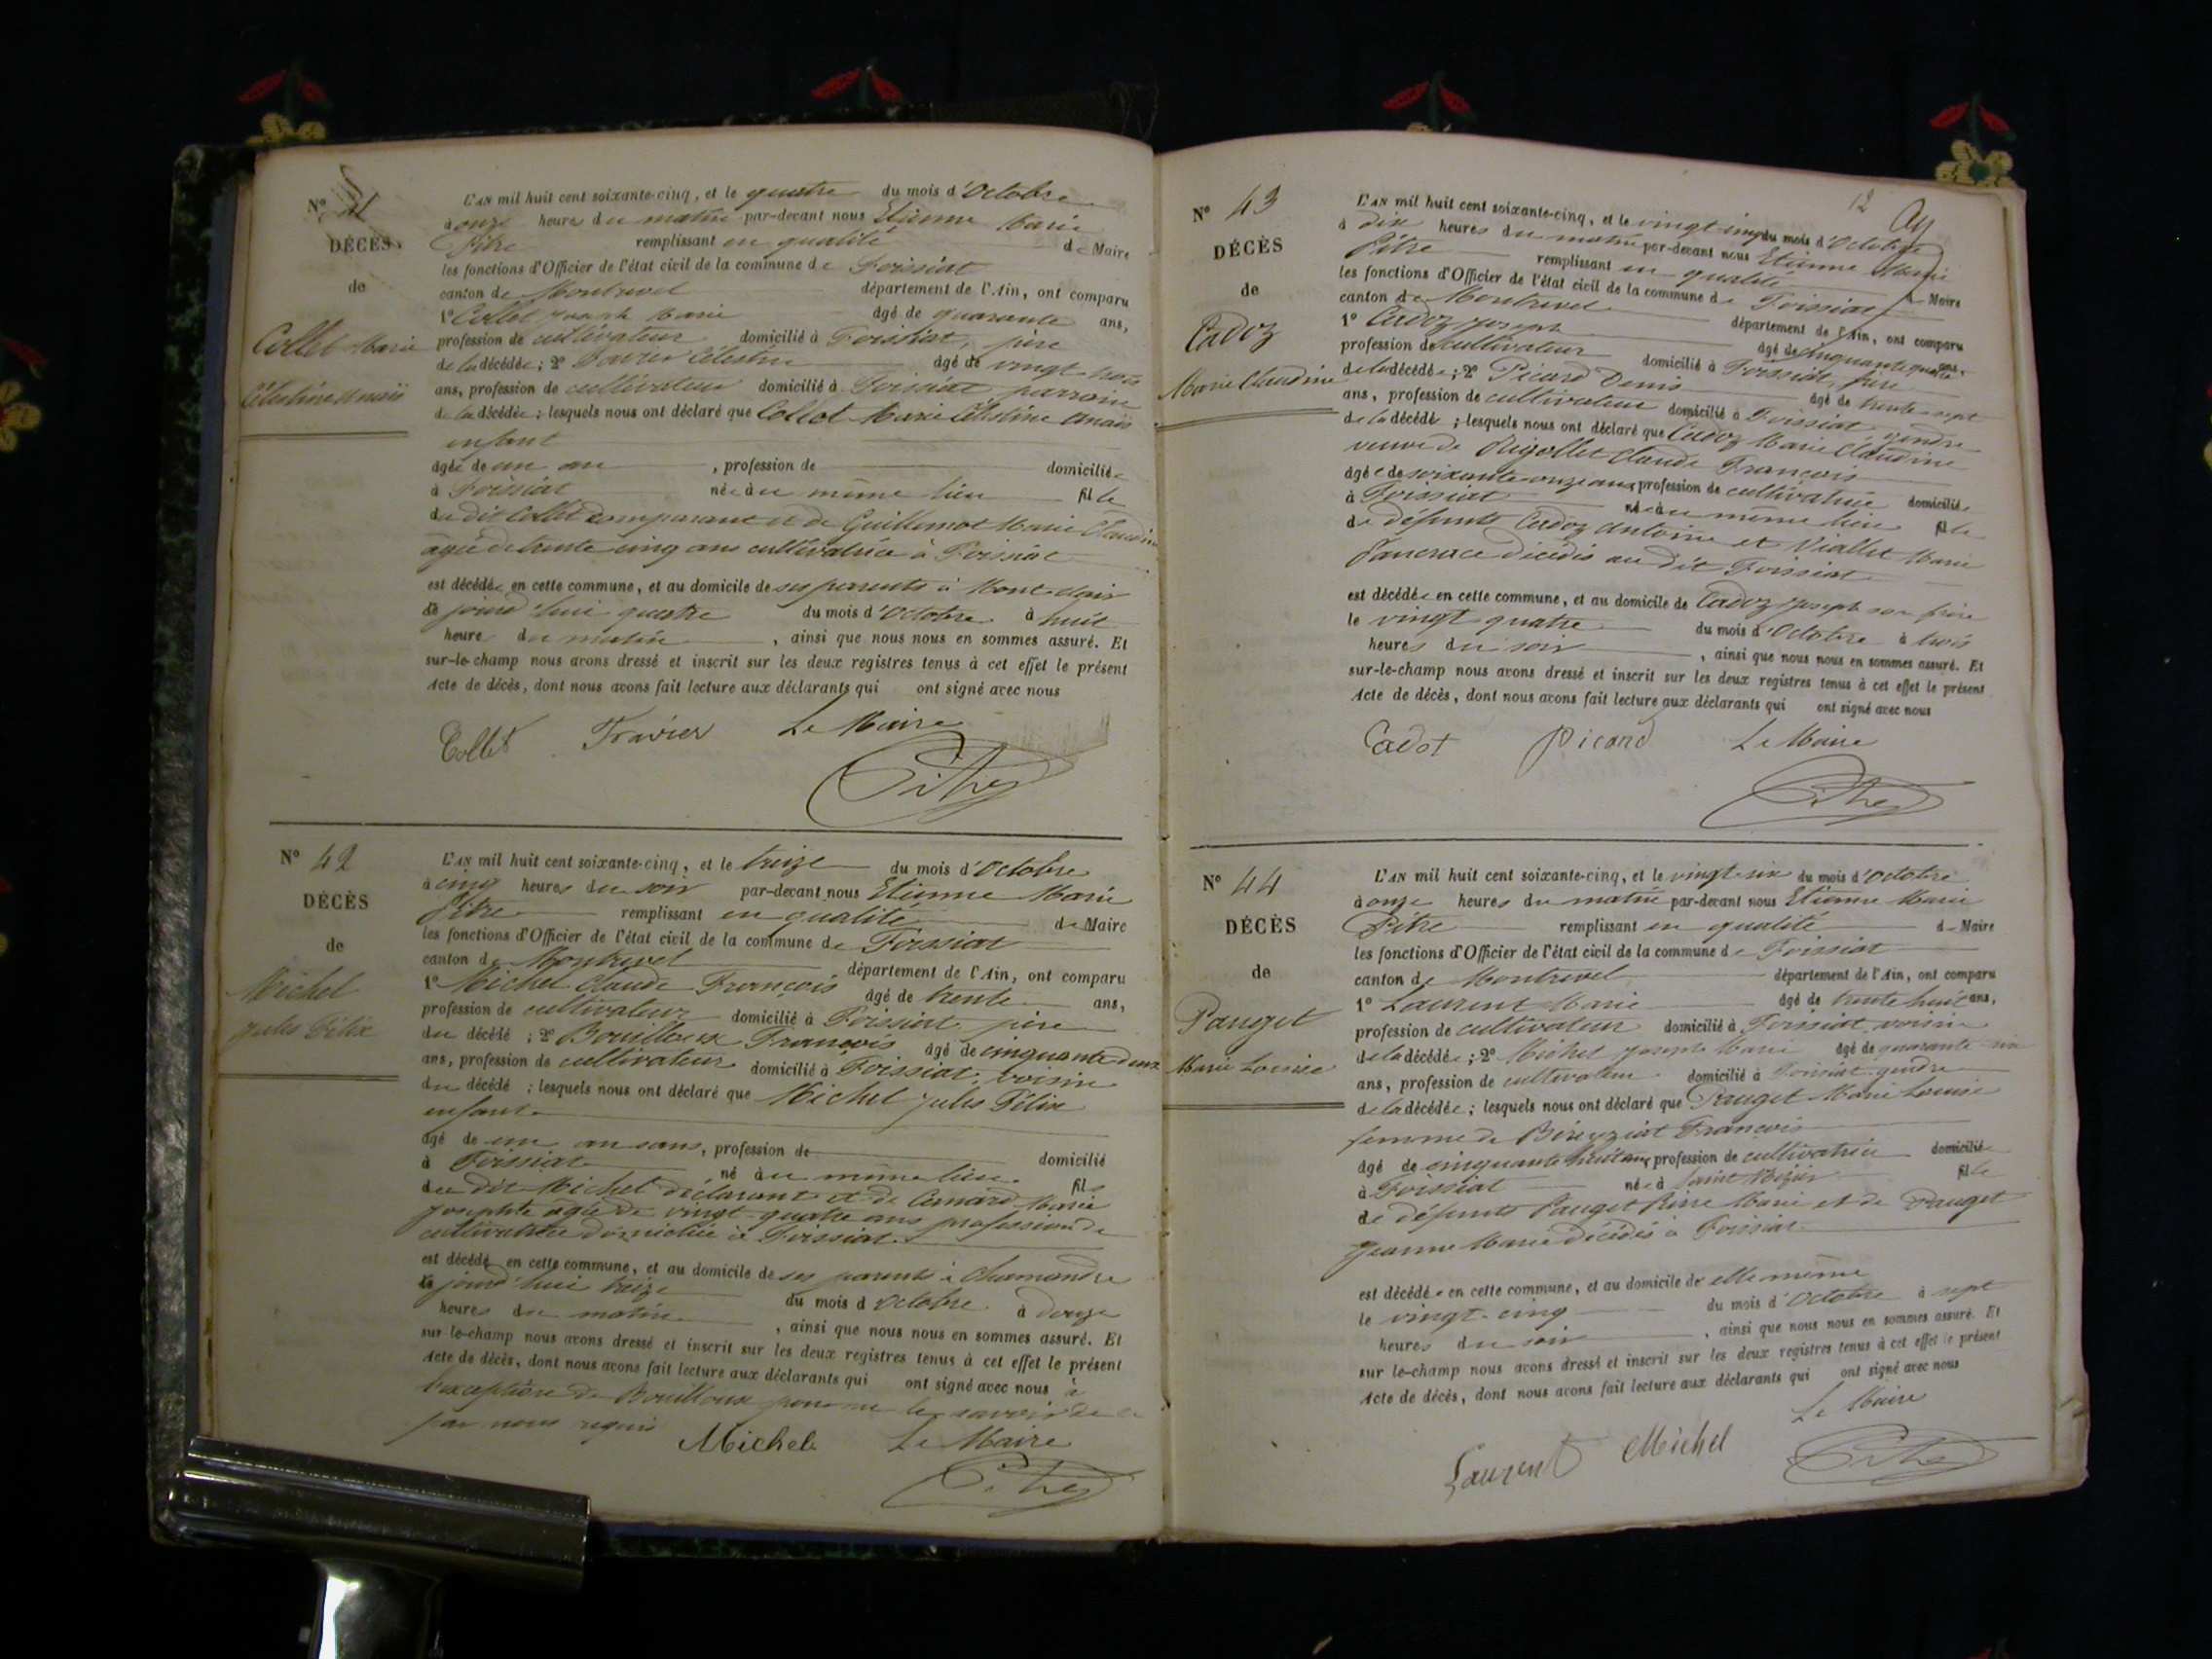 Nº 41
DÉCÈS
de
Collet Marie
Célestine Anaïs
L'AN mil huit cent soixante-cinq, et le quatre du mois d'Octobre
à onze heures du matin par-devant nous Etienne Marie
Pitre remplissant en qualité de Maire
les fonctions d'Officier de l'état civil de la commune de Foissiat
canton de Montrevel département de l'Ain, ont comparu
1º Collet Joseph Marie âgé de quarante ans,
profession de cultivateur domicilié à Foissiat, père
de la décédée; 2º Favier Célestin âgé de vingt trois
ans, profession de cultivateur domicilié à Foissiat parrain
de la décédée; lesquels nous ont déclaré que Collet Marie Célestine Anaïs
enfant
âgée de un an , profession de domiciliée
à Foissiat née au même lieu fille
du dit Collet comparant et de Guillemot Marie Claudine
âgée de trente cinq ans cultivatrice à Foissiat
est décédée en cette commune, et au domicile de ses parents à Mont-clair
ce jourd'hui quatre du mois d'Octobre à huit
heure du matin , ainsi que nous nous en sommes assuré. Et
sur-le-champ nous avons dressé et inscrit sur les deux registres tenus à cet effet le présent
Acte de décès, dont nous avons fait lecture aux déclarants qui ont signé avec nous
Collet Fravier Le Maire
Pitre
Nº 42
DÉCÈS
de
Michel
Jules Félix
L'AN mil huit cent soixante-cinq, et le treize du mois d'Octobre
à cinq heures du soir par-devant nous Etienne Marie
Pitre remplissant en qualité de Maire
les fonctions d'Officier de l'état civil de la commune de Foissiat
canton de Montrevel département de l'Ain, ont comparu
1º Michel Claude François âgé de trente ans,
profession de cultivateur domicilié à Foissiat père
du décédé; 2º Bouilloux François âgé de cinquante deux
ans, profession de cultivateur domicilié à Foissiat, voisin
du décédé; lesquels nous ont déclaré que Michel Jules Félix
enfant
âgé de un an sans, profession de domicilié
à Foissiat né au même lieu fils
du dit Michel déclarant et de Marie
Josephte âgée de vingt-quatre ans profession de
cultivatrice domiciliée à Foissiat
est décédé en cette commune, et au domicile de ses parents à Chamandre
ce jourd'hui treize du mois d'Octobre à douze
heures du matin , ainsi que nous nous en sommes assuré. Et
sur-le-champ nous avons dressé et inscrit sur les deux registres tenus à cet effet le présent
Acte de décès, dont nous avons fait lecture aux déclarants qui ont signé avec nous à
l'exception de Bouilloux pour ne le savoir de ce
par nous requis
Michel Le Maire
Pitre
12
Nº 43
DÉCÈS
de
Cadoz
Marie Claudine
L'AN mil huit cent soixante-cinq, et le vingt-cinq du mois d'Octobre
à dix heures du matin par-devant nous Etienne Marie
Pitre remplissant en qualité de Maire
les fonctions d'Officier de l'état civil de la commune de Foissiat
canton de Montrevel département de l'Ain, ont comparu
1º Cadoz Joseph âgé de cinquante quatre ans,
profession de cultivateur domicilié à Foissiat, frère
de la décédée; 2º Picard Denis âgé de trente-sept
ans, profession de cultivateur domicilié à Foissiat gendre
de la décédée; lesquels nous ont déclaré que Cadoz Marie Claudine
veuve de Rigollet Claude François
âgée de soixante-onze ans profession de cultivatrice domiciliée
à Foissiat née au même lieu fille
de défunts Cadoz Antoine et Viallet Marie
Pancrace décédés au dit Foissiat
est décédée en cette commune, et au domicile de Cadoz Joseph son frère
le vingt quatre du mois d'Octobre à trois
heures du soir , ainsi que nous nous en sommes assuré. Et
sur-le-champ nous avons dressé et inscrit sur les deux registres tenus à cet effet le présent
Acte de décès, dont nous avons fait lecture aux déclarants qui ont signé avec nous
Cadot Picard Le Maire
Pitre
Nº 44
DÉCÈS
de
Pauget
Marie Louise
L'AN mil huit cent soixante-cinq, et le vingt-six du mois d'Octobre
à onze heures du matin par-devant nous Etienne Marie
Pitre remplissant en qualité de Maire
les fonctions d'Officier de l'état civil de la commune de Foissiat
canton de Montrevel département de l'Ain, ont comparu
1º Laurent Marie âgé de trente huit ans,
profession de cultivateur domicilié à Foissiat voisin
de la décédée; 2º Michel Joseph Marie âgé de quarante-six
ans, profession de cultivateur domicilié à Foissiat gendre
de la décédée; lesquels nous ont déclaré que Pauget Marie Louise
femme de Béreyziat François
âgé de cinquante huit ans profession de cultivatrice domiciliée
à Foissiat née à Saint Nizier fille
de défunts Pauget Pierre Marie et de Pauget
Jeanne Marie décédés à Foissiat
est décédée en cette commune, et au domicile de elle même
le vingt-cinq du mois d'Octobre à sept
heures du soir , ainsi que nous nous en sommes assuré. Et
sur-le-champ nous avons dressé et inscrit sur les deux registres tenus à cet effet le présent
Acte de décès, dont nous avons fait lecture aux déclarants qui ont signé avec nous
Le Maire
Laurent Michel
Pitre